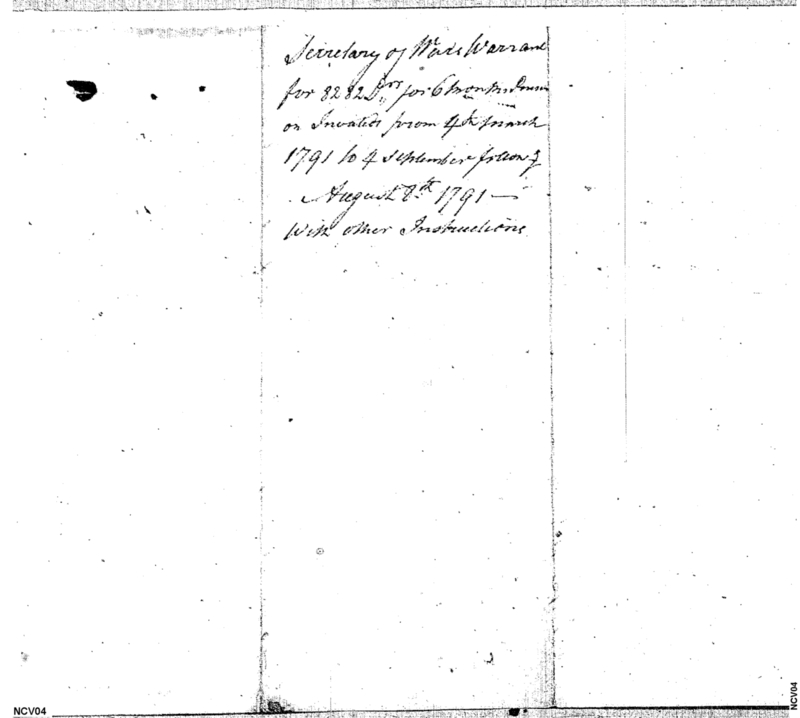 Secretary of Wars Warrant
for 8282 Drs for 6 months
on Invalids from 4th march
1791 to 4 September
August 8th 1791 —
With other Instructions
NCV04
NCV04